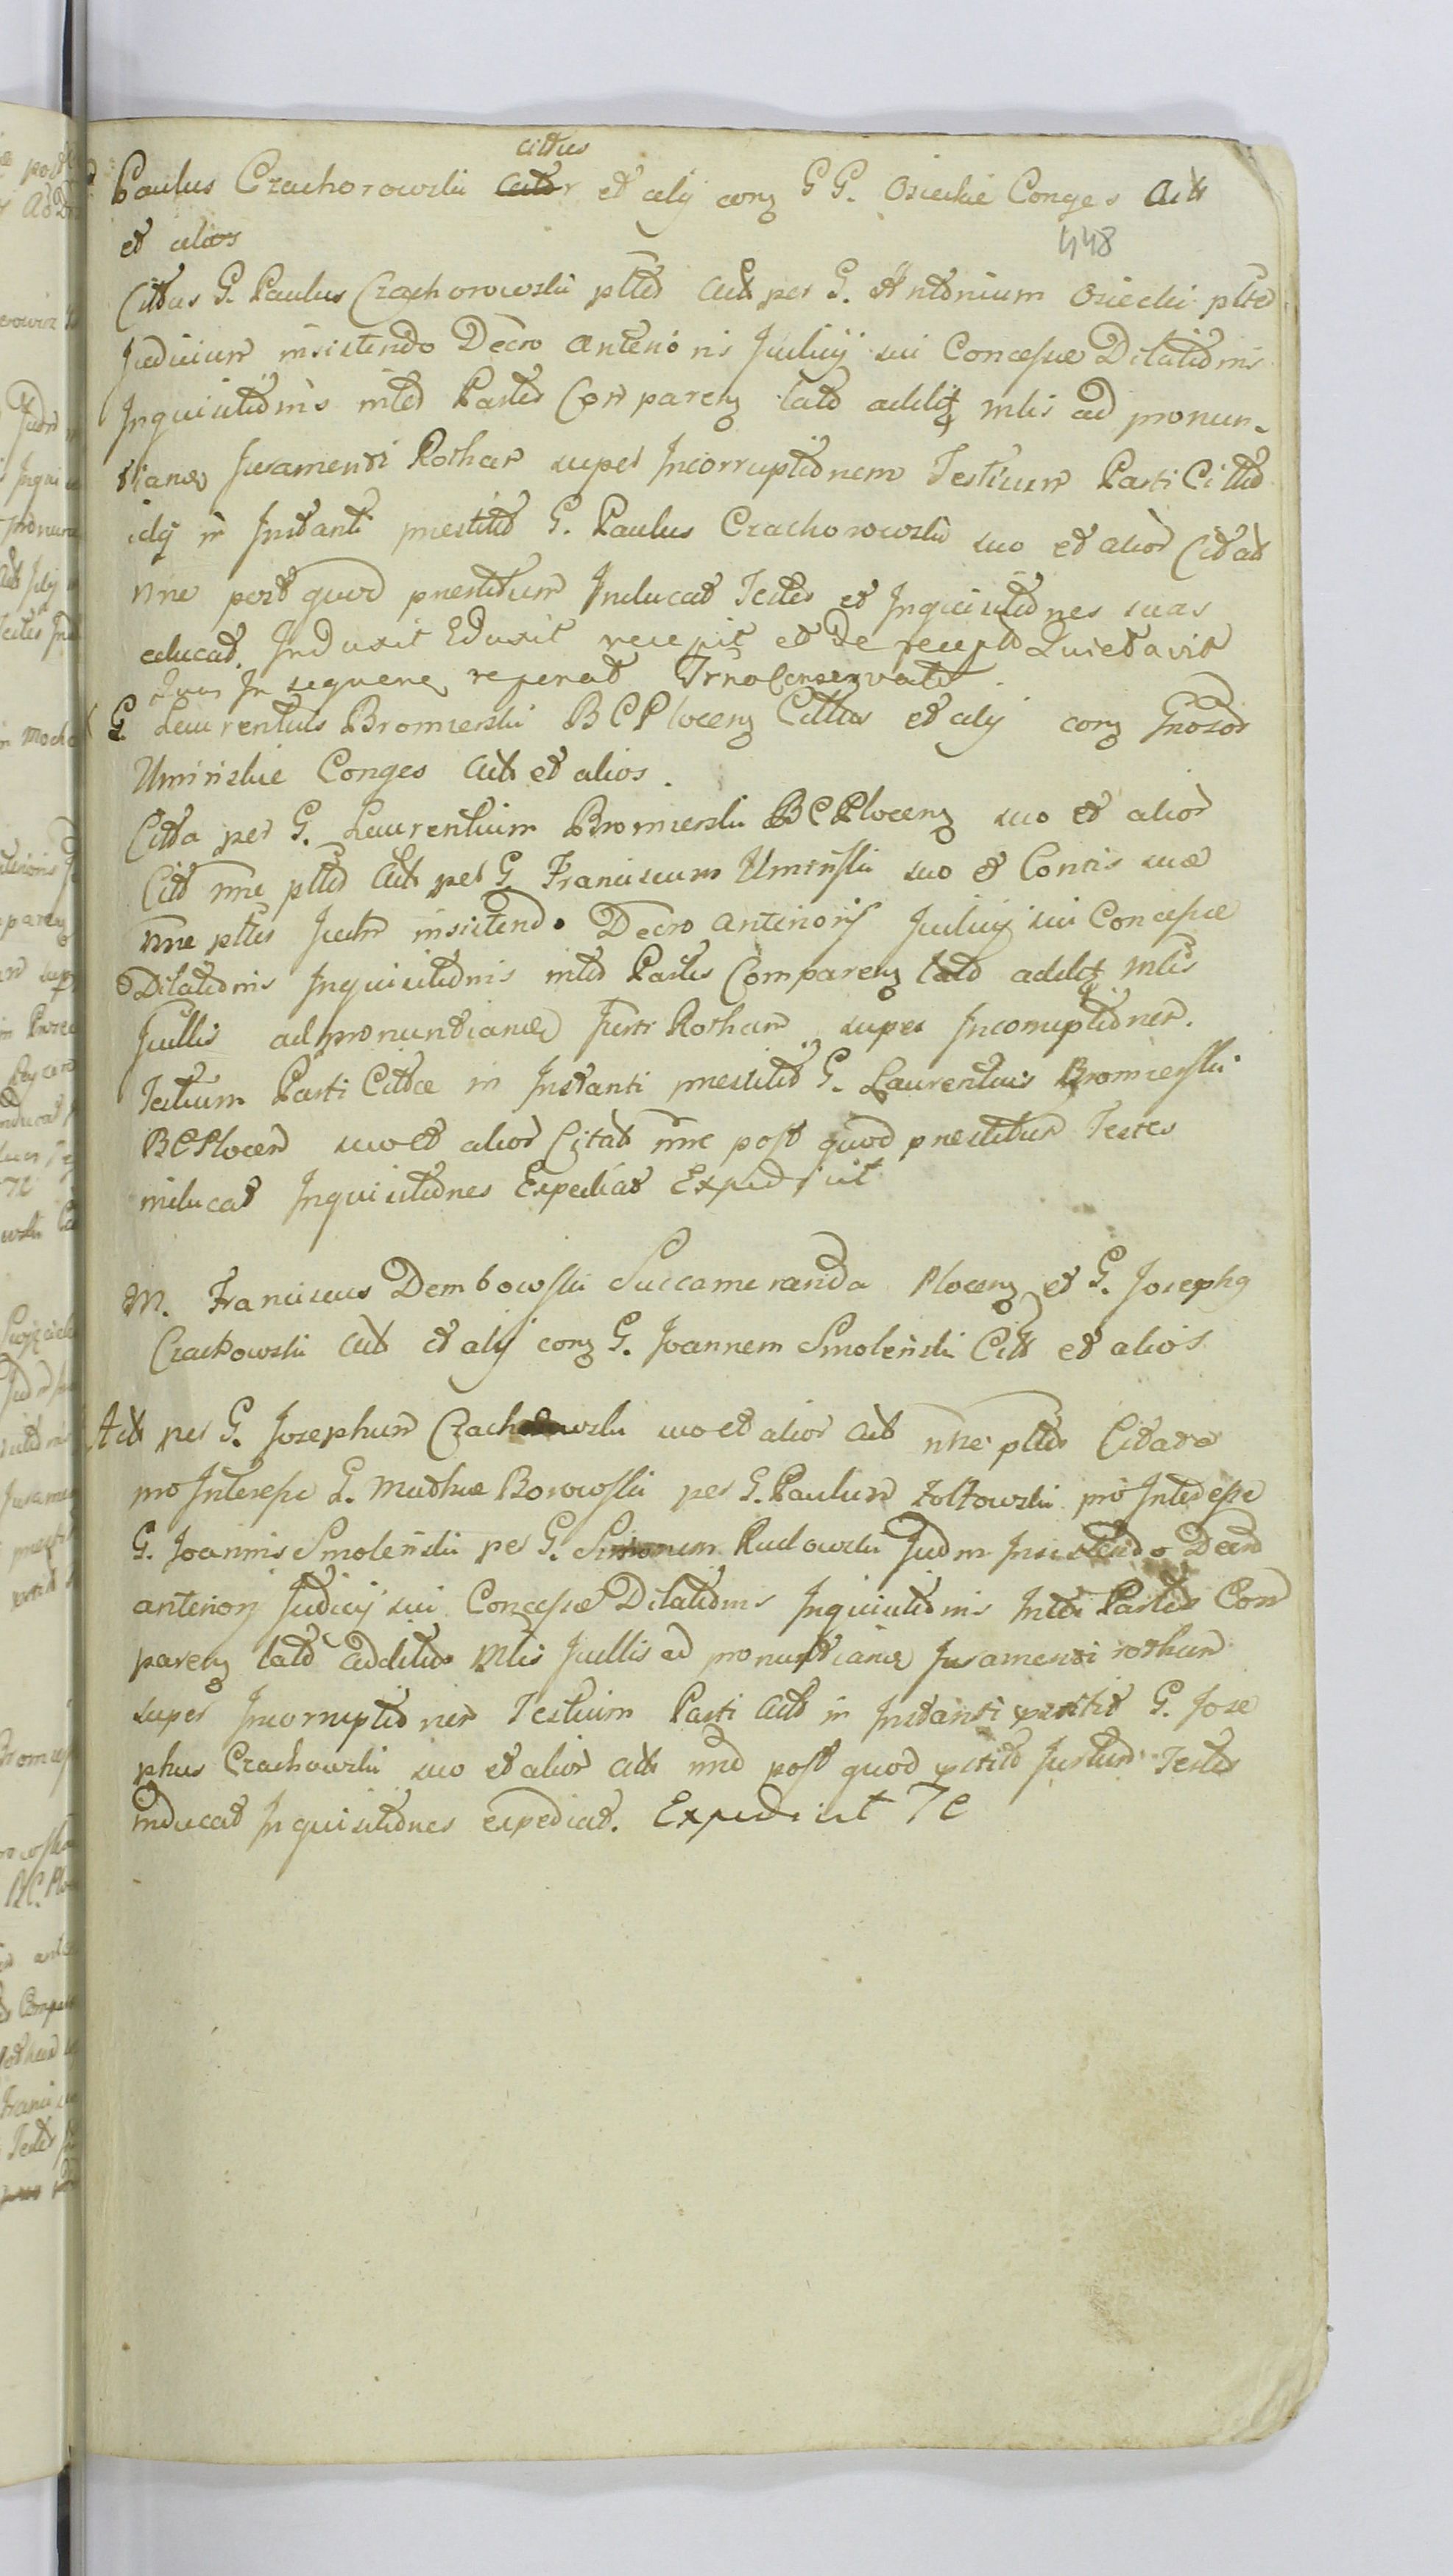 cittus
Paulus Czachorowski et alÿ conz G G. Osieckie Conges Actt
et alios
448
Cittus G. Paulus Czachorowski pltts Actt per G. Antonium Osiecki pltte
Judicium insistendo Decro Anterioris Judicÿ sui Concessæ Dilationis
Inquisitionis inter Partes Comparenz lato additq mlis ad pronun-
tiand Juramenti Rotham super Incorruptionem Testium Parti Citte
idq in Instanti præstitit G. Paulus Czachorowski suo et alior Citat
nne post quod præstitum Inducat Testes et Inquisitiones suas
educat. Induxit Eduxit recepit et De recepto Quietavit
Quas In sequenz reperiat Trno Conservato
G. Laurentius Bromierski B C Plocenz Cittus et alÿ conz Gnosos
Uminskie Conges Actt et alios.
Citta per G. Laurentium Bromierski BCPlocenz suo et alior
Citt nne pltts Actt per G. Franciscum Uminski suo et Contis suæ
nne pltes Judm insistendo Decro Anterioris Judicÿ sui Concessæ
Dilationis Inquisitionis inter Partes Comparenz lato additq mlis
Juellis ad pronuntiand Jurti Rotham super Incorruptionem
Testium Parti Cittæ in Instanti præstitit G. Laurentius Bromierski
BCPlocen suo et alior Citat nne post quod præstitum Testes
inducat Inquisitiones Expediat Expedivit
M. Franciscus Dembowski Succameranda Plocenz et G. Josephq
Czachowski Actt et alÿ conz G. Joannem Smolenski Citt et alios
Actt per G. Josephum suo et alior Actt nne pltts Citatæ
pro Interesse G. Mathiæ Borowski per G. Paulum Zoltowski pro Interesse
G. Joannis Smolenski per G. Simonem Rudowski Judm Insistendo Decro
anterioz Judicÿ sui Concessæ Dilationis Inquisitionis Inter Partes Com
parenz lato additis Mlis Juellis ad pronuntiand Juramenti rotham
super Incorruptionem Testium Parti Actt in Instanti pstitit G. Jose
phus Czachowski suo et alior Actt nne post quod pstito Jurtum Testes
inducat Inquisitiones expediat. Expedivit Te